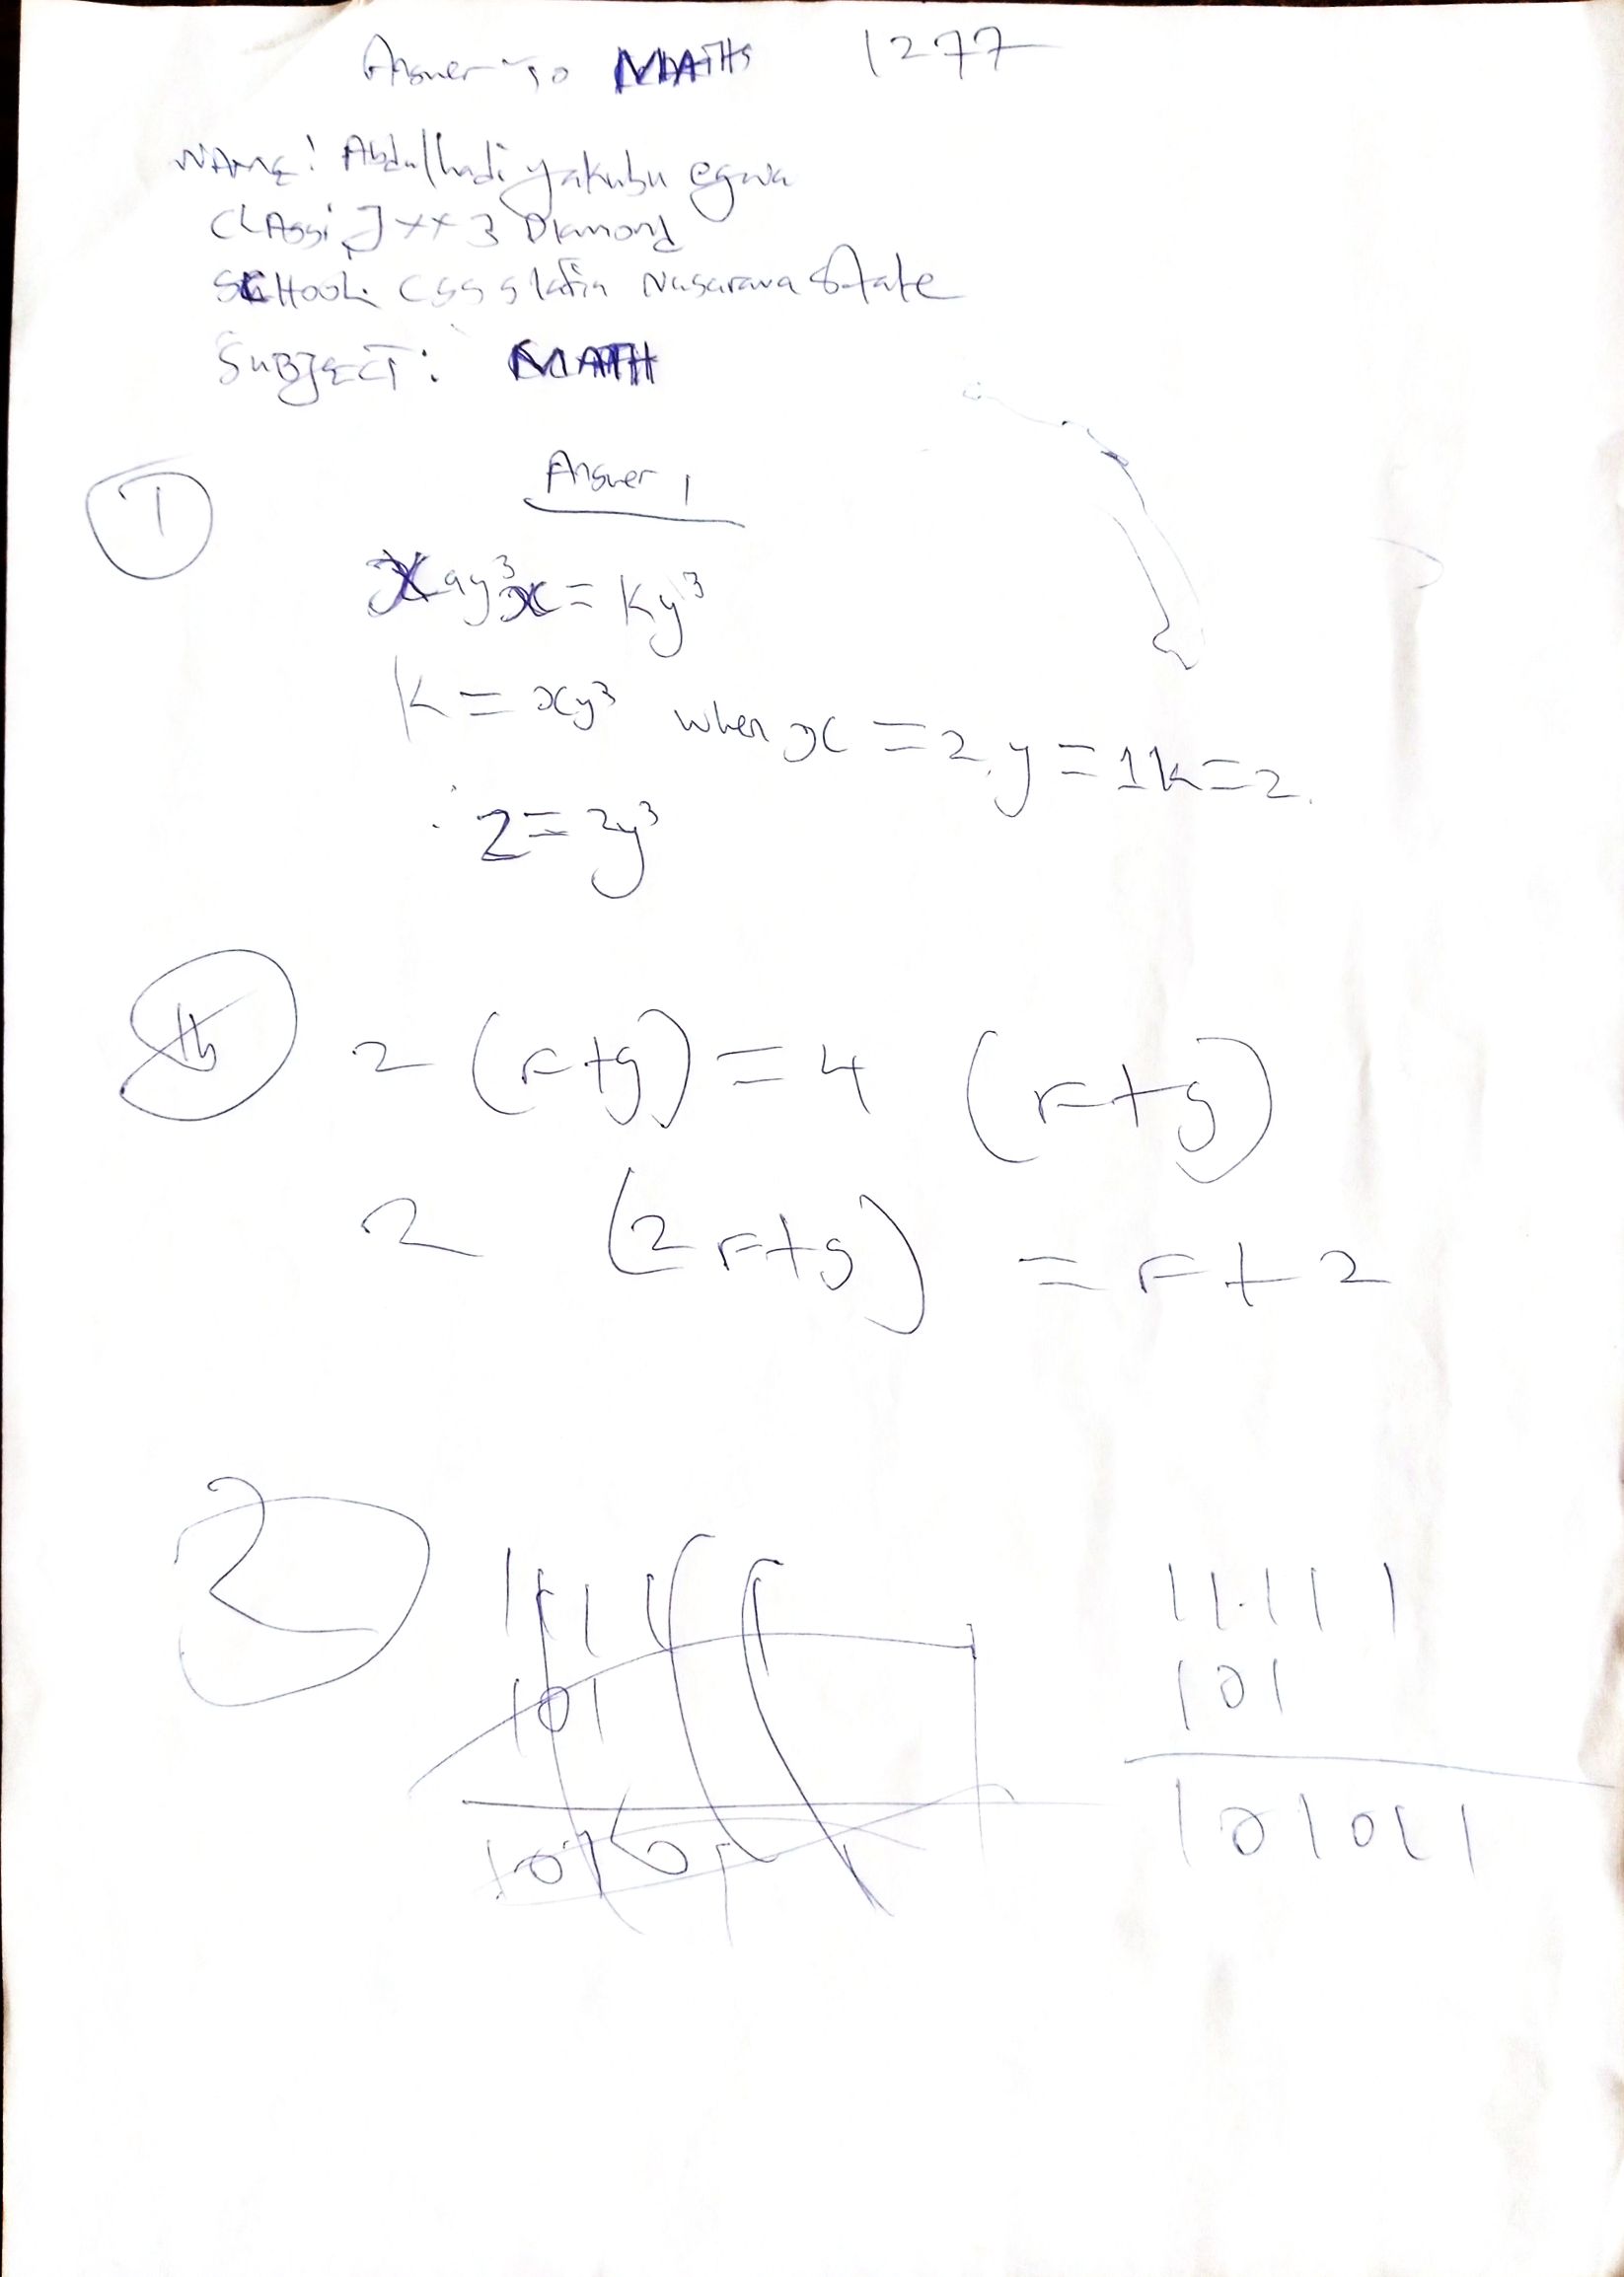 Answer to MATHS 1277
NAME: Abdulhadi yakubu egwa
CLASS: J++ 3 Diamond
SCHOOL: CSS s lafia Nasarawa State
SUBJECT: MATH
Answer 1
1
x ay³ x = Ky³
K = xy³ when x = 2, y = 1 k = 2.
∴ 2 = 2y³
1b 2 (r+g) = 4 (r+g)
2 (2r+g) = r+2
2
11111
101
101011